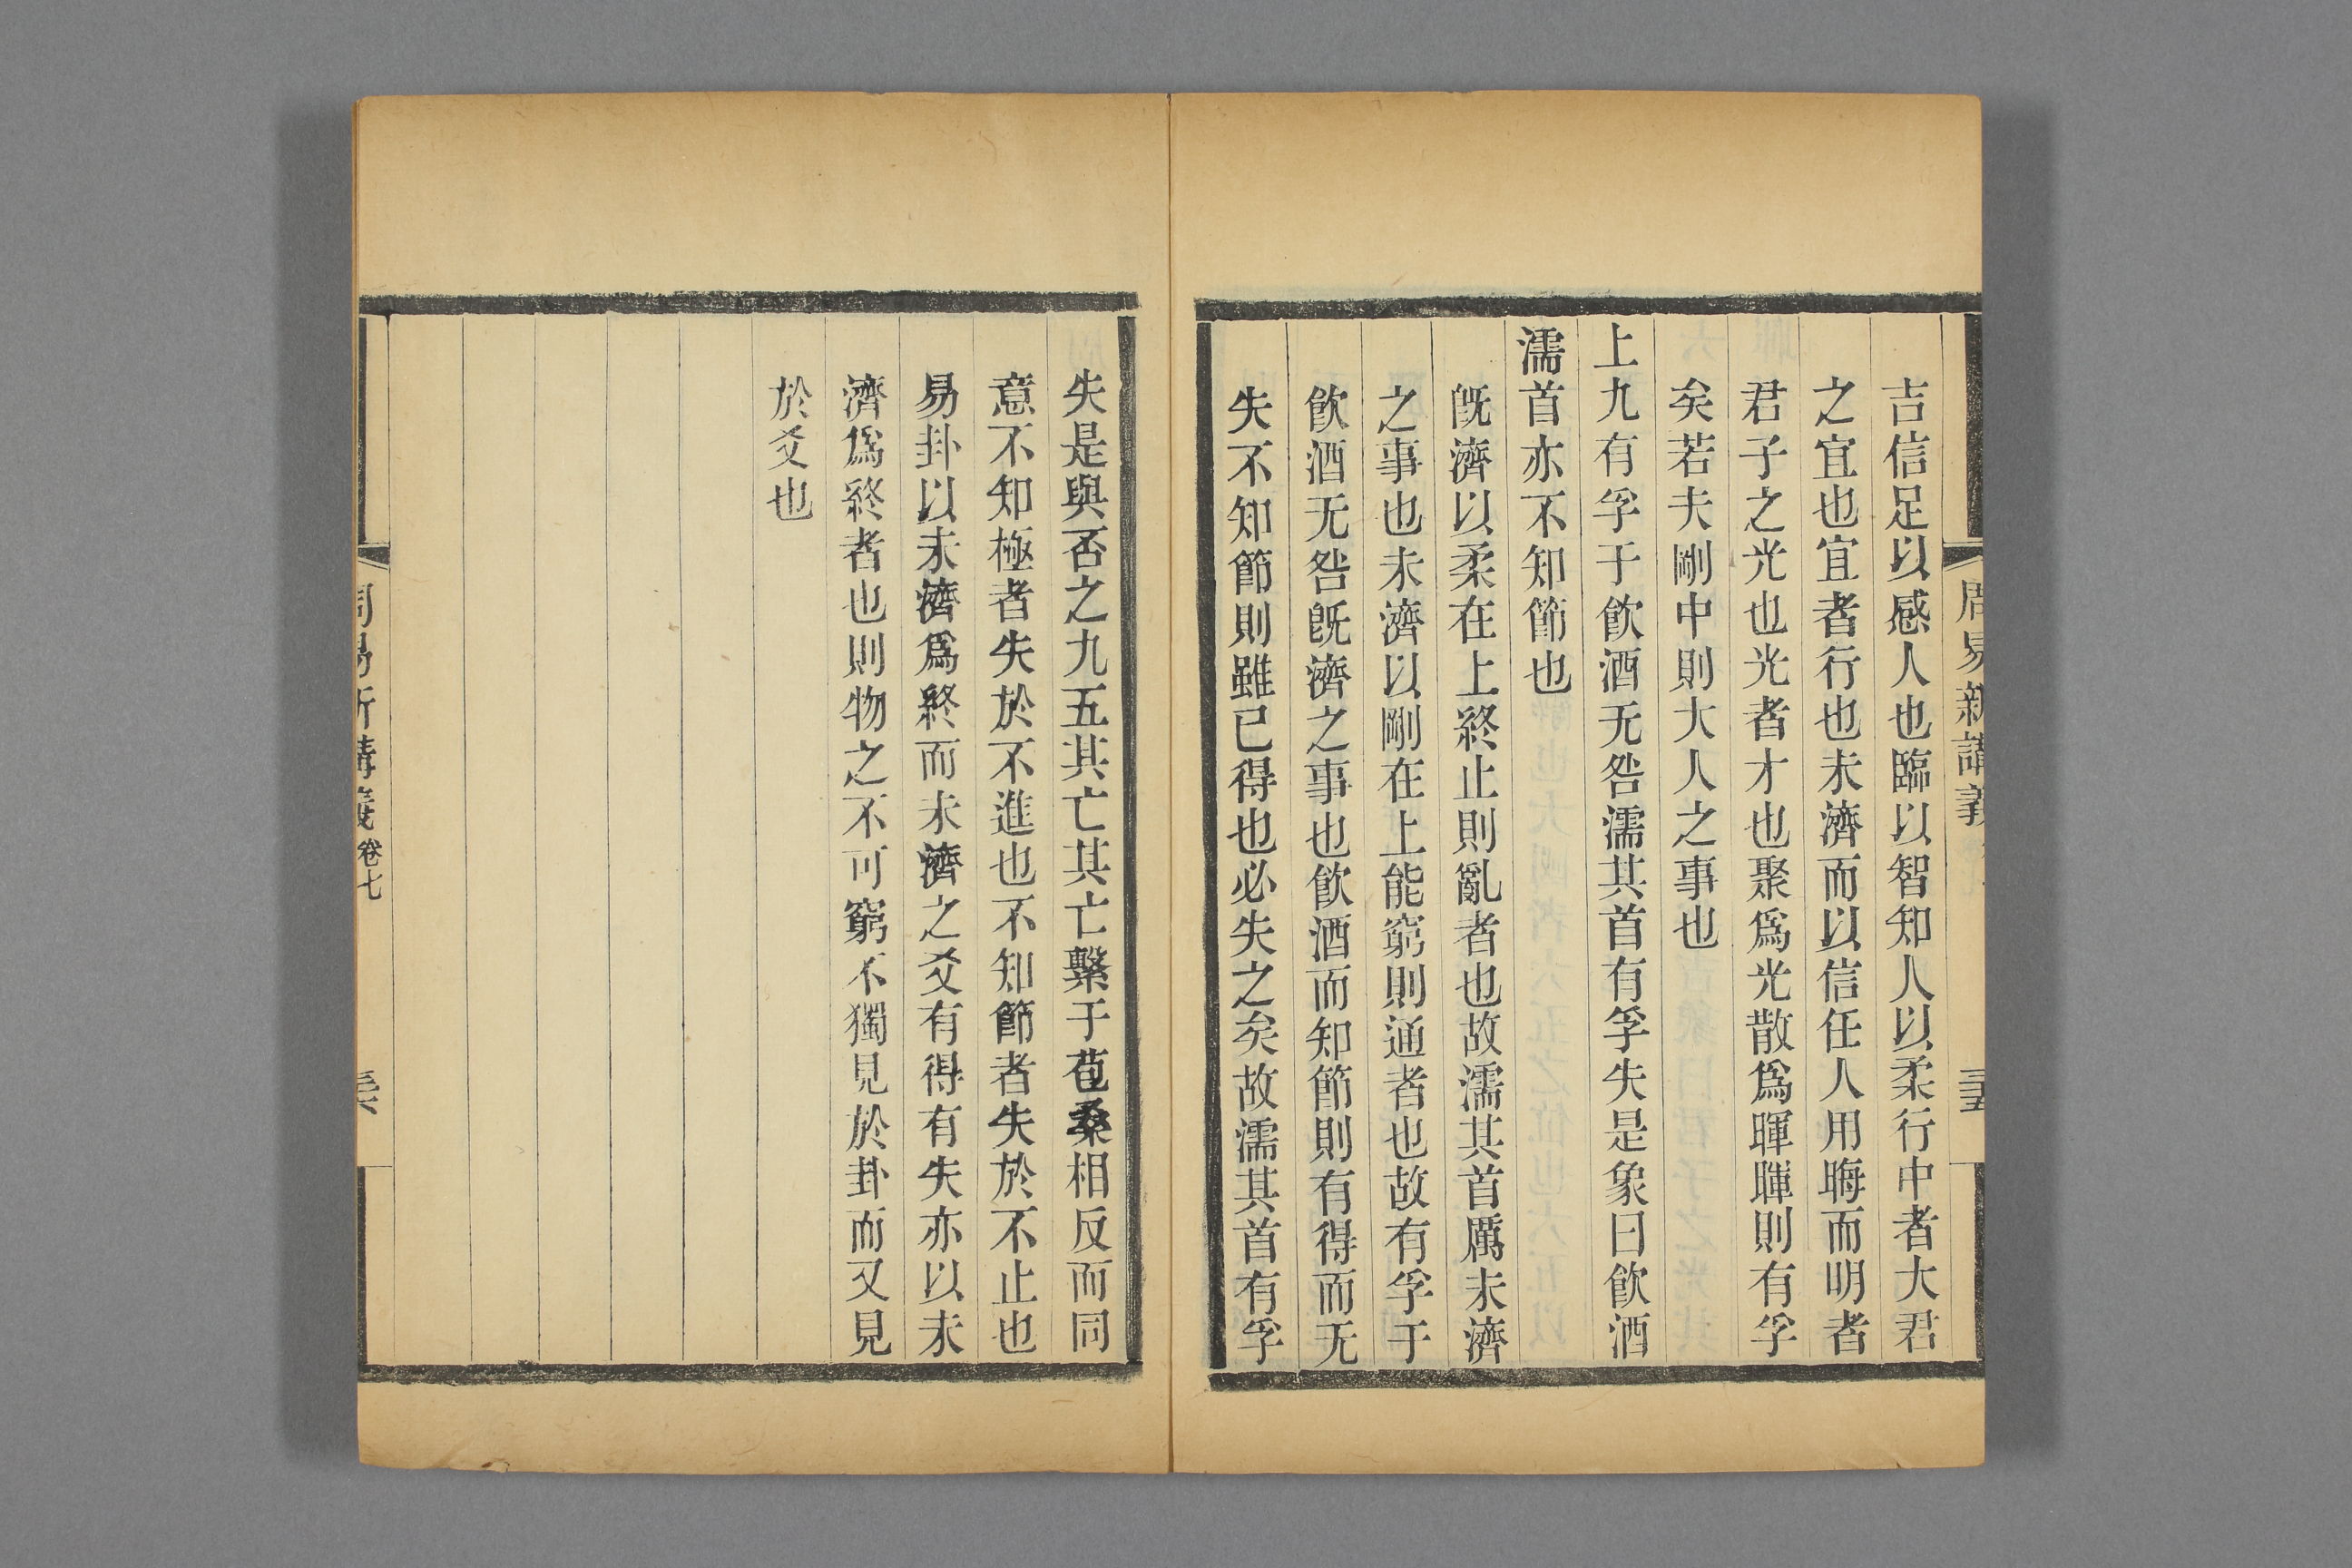 周易新講義
三五
吉信足以感人也臨以智知人以柔行中者大君
之宜也宜者行也未濟而以信任人用晦而明者
君子之光也光者才也聚爲光散爲暉暉則有孚
矣若夫剛中則大人之事也
上九有孚于飲酒无咎濡其首有孚失是象曰飲酒
濡首亦不知節也
旣濟以柔在上終止則亂者也故濡其首厲未濟
之事也未濟以剛在上能窮則通者也故有孚于
飲酒无咎旣濟之事也飲酒而知節則有得而无
失不知節則雖已得也必失之矣故濡其首有孚
失是與否之九五其亡其亡繫于苞桑相反而同
意不知極者失於不進也不知節者失於不止也
易卦以未濟爲終而未濟之爻有得有失亦以未
濟爲終者也則物之不可窮不獨見於卦而又見
於爻也
周易新講義 卷七
三六